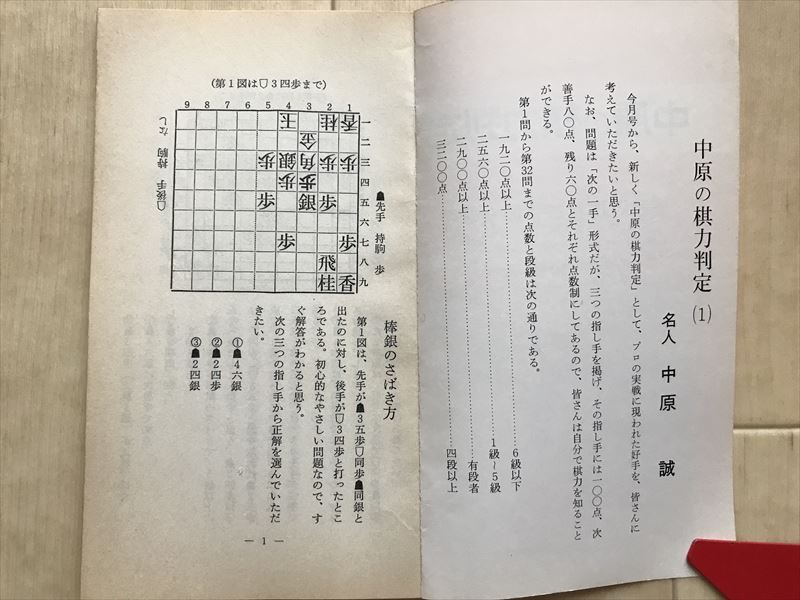 中原の棋力判定(1)
名人 中原 誠
今月号から、新しく「中原の棋力判定」として、プロの実戦に現われた好手を、皆さんに
考えていただきたいと思う。
なお、問題は「次の一手」形式だが、三つの指し手を掲げ、その指し手には一〇〇点、次
善手八〇点、残り六〇点とそれぞれ点数制にしてあるので、皆さんは自分で棋力を知ること
ができる。
第1問から第32問までの点数と段級は次の通りである。
一九二〇点以上……6級以下
二五六〇点以上……1級〜5級
二九〇〇点以上……有段者
三二〇〇点……四段以上
(第1図は☖3四歩まで)
9 8 7 6 5 4 3 2 1
一二三四五六七八九
☖後手 持駒 なし
☗先手 持駒 歩
玉 桂 香
金
歩 銀 角 歩 歩
歩 歩
歩 銀 歩
歩 歩
飛
桂 香
棒銀のさばき方
第1図は、先手が☗3五歩☖同歩☗同銀と
出たのに対し、後手が☖3四歩と打ったとこ
ろである。初心的なやさしい問題なので、す
ぐ解答がわかると思う。
次の三つの指し手から正解を選んでいただ
きたい。
①☗4六銀
②☗2四歩
③☗2四銀
— 1 —